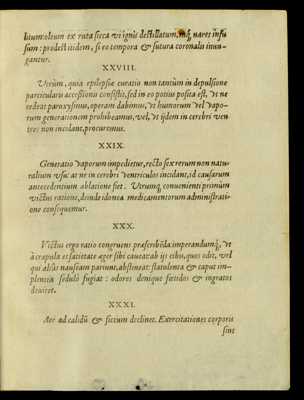 bitum: oleum ex ruta sicca vi ignis destillatum, inq; nares infu
sum: prodest itidem, si eo tempora & sutura coronalis inun-
gantur.
XXVIII.
Verùm, quia epilepsiæ curatio non tantùm in depulsione
particularis accessionis consistit, sed in eo potius posita est, vt ne
redeat paroxysmus, operam dabimus, vt humorum vel vapo-
rum generationem prohibeamus, vel, vt ijdem in cerebri ven
tres non incidant, procuremus.
XXIX.
Generatio vaporum impedietur, recto sex rerum non natu-
ralium vsu: at ne in cerebri ventriculos incidant, id causarum
antecedentium ablatione fiet. Vtrumq; conuenienti primùm
victus ratione, deinde idonea medicamentorum administrati-
one consequemur.
XXX.
Victus ergo ratio congruens præscribenda imperandumq;, vt
à crapula et satietate æger sibi caueat: ab ijs cibis, quos odit, vel
qui aliàs nauseam pariunt, abstineat: flatulenta & caput im-
plentia sedulò fugiat: odores denique fœtidos & ingratos
deuitet.
XXXI.
Aer ad calidũ & siccum declinet. Exercitationes corporis
sint